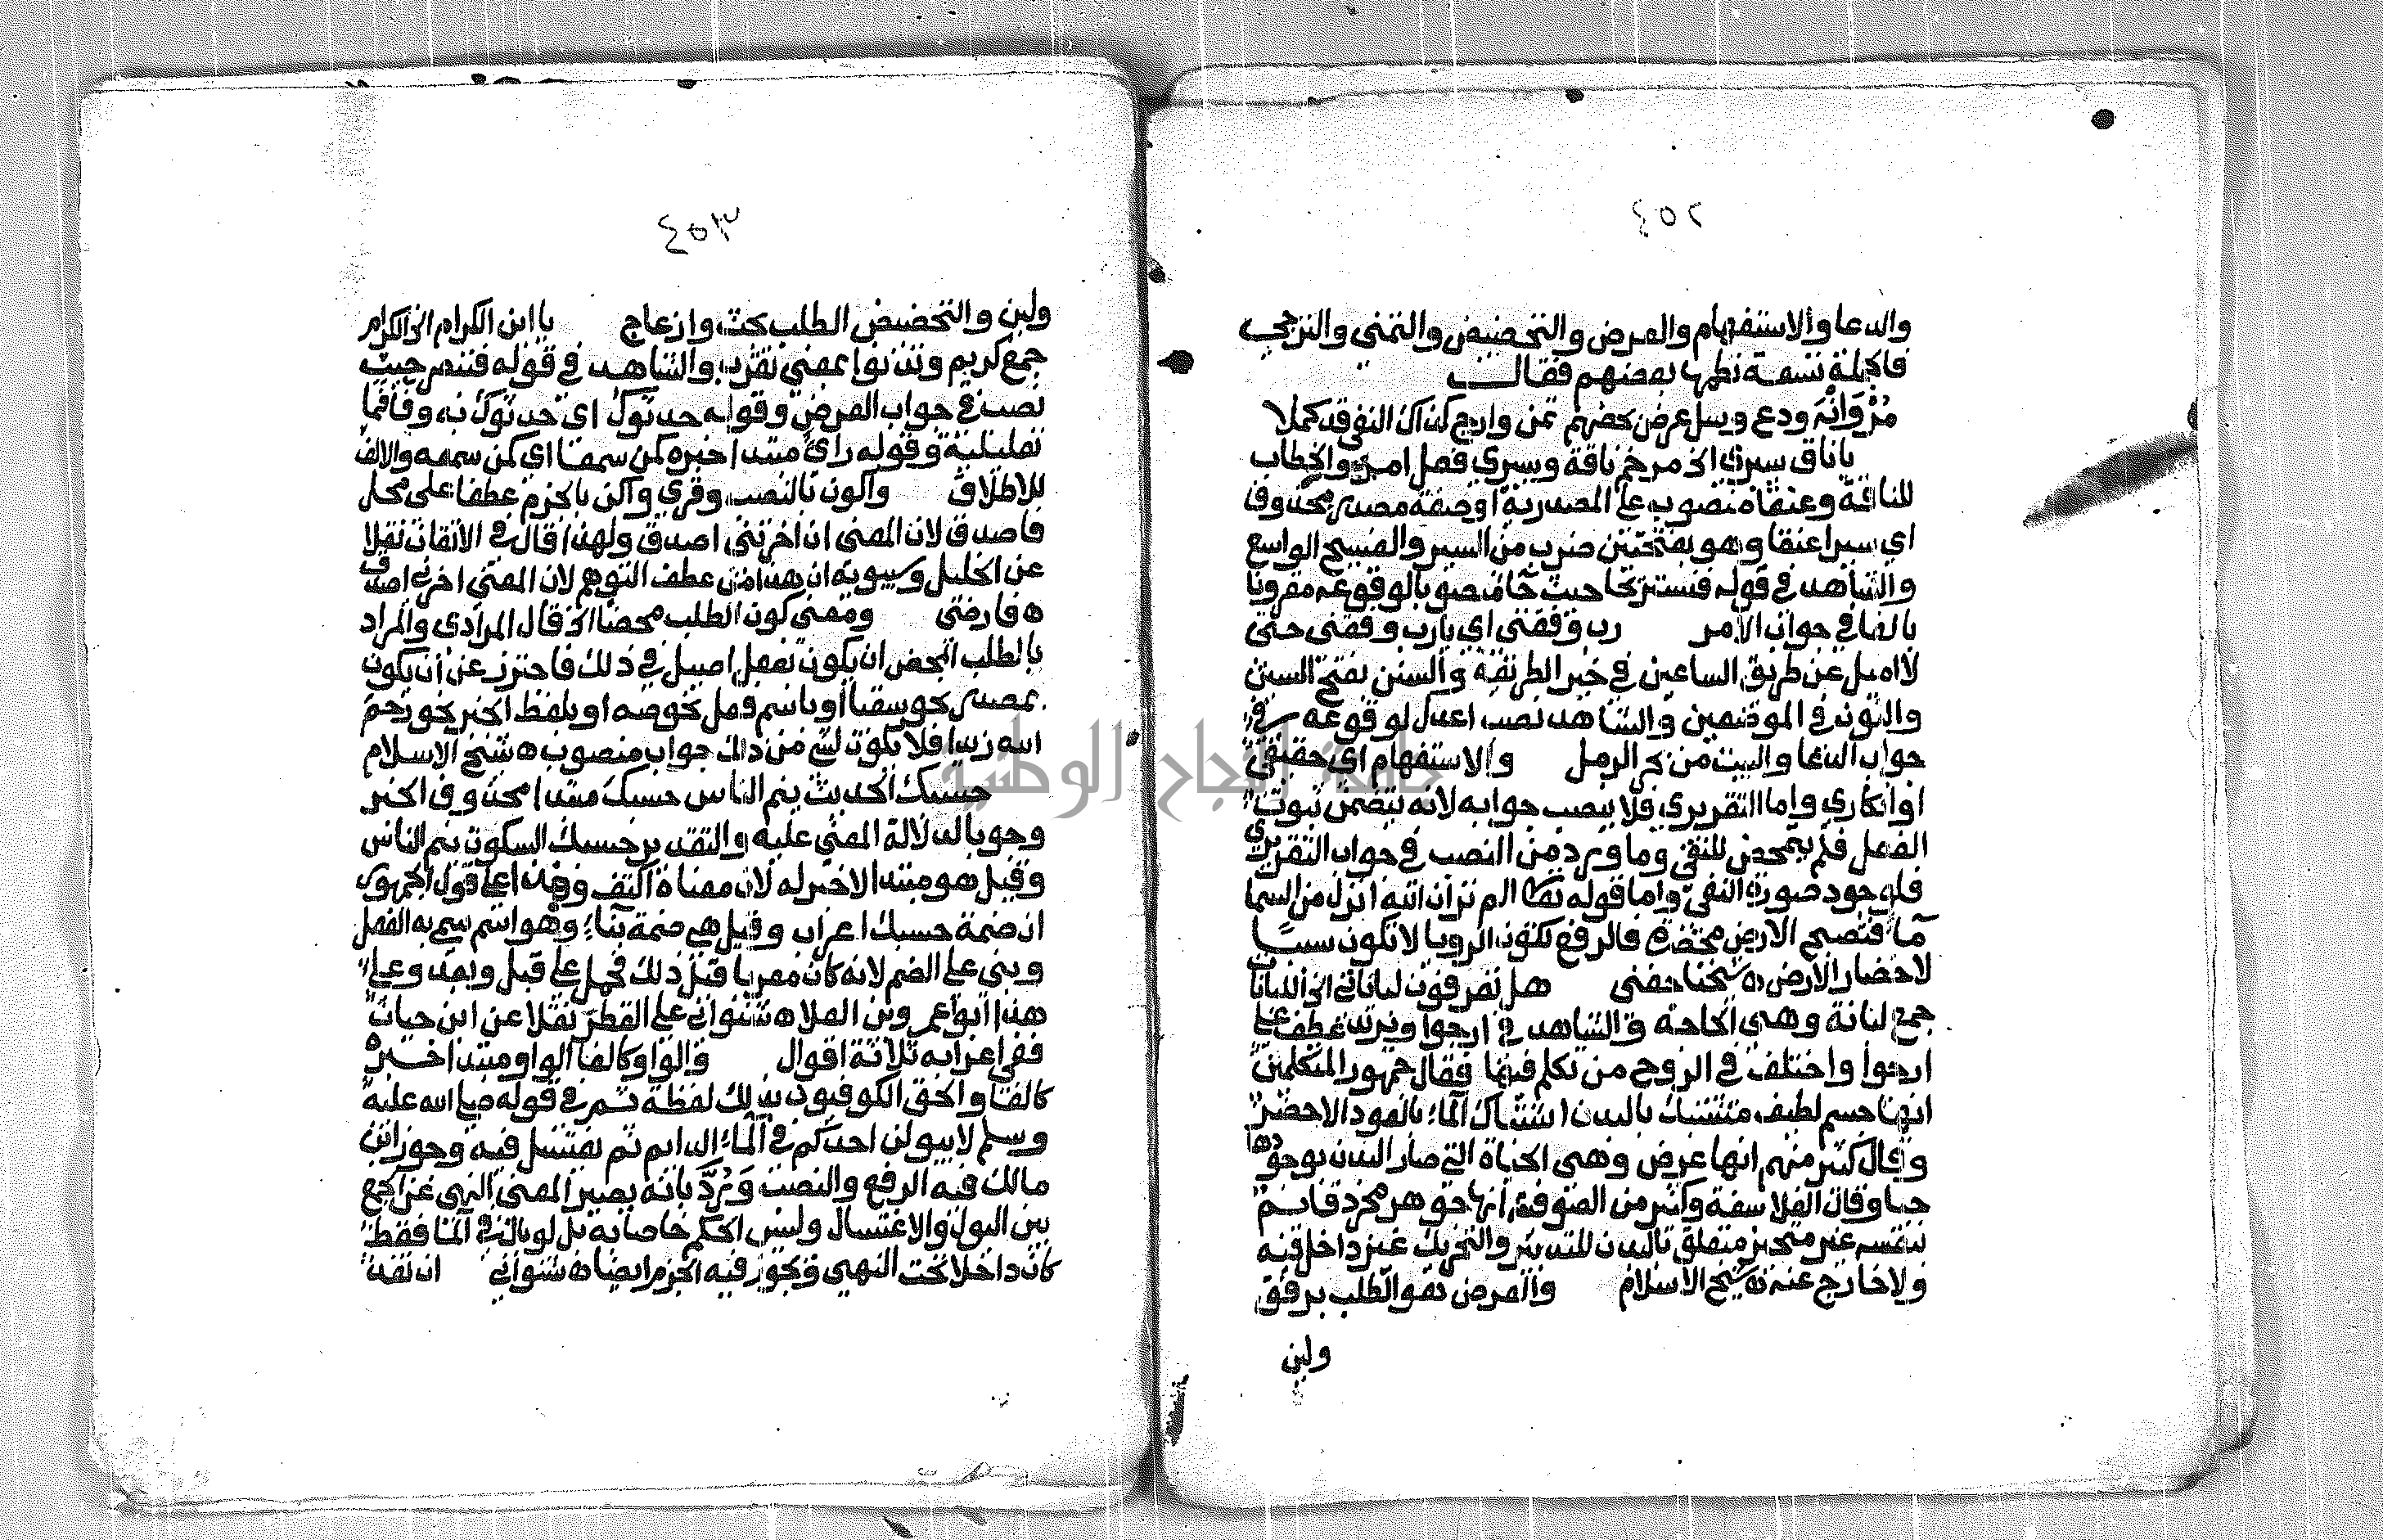 ٤٥٢
والدعا والاستفهام والعرض والتحضيض والتمني والترجي
فالجملة تسعة نظمها بعضهم فقال
مر وانه ودع وسل عرض لحضهم تمن وارج كذاك النفي قد كملا
يا ناق سيري الخ مرخم ناقة وسيري فعل امر والخطاب
للناقة وعنقا منصوب على المصدرية او صفة مصدر محذوف
اي سيرا عنقا وهو بفتحتين ضرب من السير والفسيح الواسع
والشاهد في قوله فنستريحا حيث جا منصوبا لوقوعه مقرونا
بالفا في جواب الامر رب وفقني اي يا رب وفقني حتى
لا اميل عن طريق الساعين في خير الطريقة والسنن بفتح السين
والنون في الموضعين والشاهد نصب اعدل لوقوعه في
جواب الدعا والبيت من بحر الرمل والاستفهام اي حقيقي
او انكاري واما التقريري فلا ينصب جوابه لانه يتضمن ثبوت
الفعل فلم يتمحض للنفي وما ورد من النصب في جواب التقريري
فلوجود صورة النفي واما قوله تعالى الم تر ان الله انزل من السما
ما فتصبح الارض مخضرة فالرفع لكون الرويا لا تكون سببا
لاخضار الارض ه شيخنا حفني هل تعرفون لباناتي الخ اللبانات
جمع لبانة وهي الحاجة والشاهد في ارجوا ويرتد عطف على
ارجوا واختلف في الروح من تكلم فيها فقال جمهور المتكلمين
انها جسم لطيف متشبك بالبدن اشتباك الما بالعود الاخضر
وقال كثير منهم انها عرض وهي الحياة التي صار البدن بوجودها
حيا وقال الفلاسفة وكثير من الصوفة انها جوهر مجرد قايم
بنفسه غير متحيز متعلق بالبدن للتدبير والتحريك غير داخل فيه
ولا خارج عنه ه شيخ الاسلام والعرض هو الطلب برفق
ولين
٤٥٣
ولين والتحضيض الطلب بحث وازعاج يا ابن الكرام الخ الكرام
جمع كريم وتدنوا بمعنى تقرب والشاهد في قوله فتبصر حيث
نصب في جواب العرض وقوله حدثوك اي حدثوك به وفا فما
تعليلية وقوله راي مبتدا خبره كمن سمعا اي كمن سمعه والالف
للاطلاق واكون بالنصب وقري واكن بالجزم عطفا على محل
فاصدق لان المعنى ان اخرتني اصدق ولهذا قال في الاتقان نقلا
عن الخليل وسيبويه ان هذا من عطف التوهم لان المعنى اخرني اصدق
ه فارضي ومعنى كون الطلب محضا الخ قال المرادي والمراد
بالطلب المحض ان يكون بفعل اصيل في ذلك فاحترز عن ان يكون
بمصدر نحو سقيا او باسم فعل نحو صه او بلفظ الخبر نحو رحم
الله زيدا فلا يكون لشي من ذلك جواب منصوب ه شيخ الاسلام
حسبك الحديث ينم الناس حسبك مبتدا محذوف الخبر
وجوبا لدلالة المعنى عليه والتقدير حسبك السكوت ينم الناس
وقيل هو مبتدا لا خبر له لان معناه اكتف وهذا على قول الجمهور
ان ضمة حسبك اعراب وقيل هي ضمة بنا وهو اسم سمي به الفعل
وبني على الضم لانه كان معربا قبل ذلك فحمل على قبل وبعد وعلى
هذا ابو عمرو بن العلا ه شنواني على القطر نقلا عن ابن حيان
ففي اعرابه ثلاثة اقوال والواو كالفا الواو مبتدا خبره
كالفا والحق الكوفيون بذلك لفظة ثم في قوله صلى الله عليه
وسلم لا يبولن احدكم في الما الدايم ثم يغتسل فيه وجوز ابن
مالك فيه الرفع والنصب ورد بانه يصير المعنى النهي عن الجمع
بين البول والاغتسال وليس الحكم خاصا به بل لو بال في الما فقط
كان داخلا تحت النهي ويجوز فيه الجزم ايضا ه شنواني ان تقد